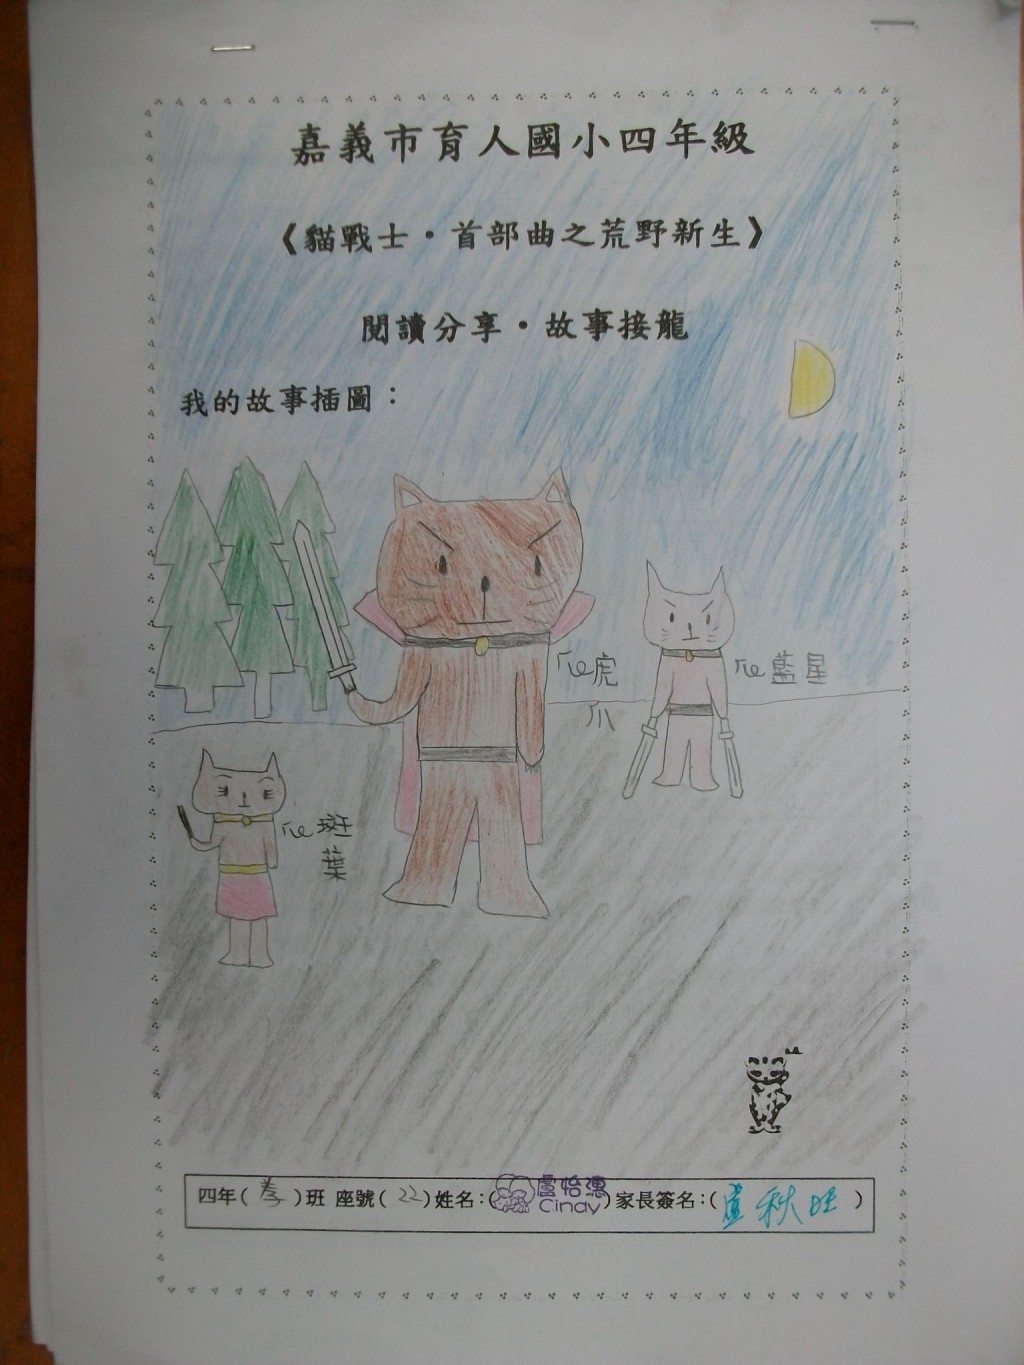 嘉義市育人國小四年級
《貓戰士·首部曲之荒野新生》
閱讀分享·故事接龍
我的故事插圖：
虎爪
藍星
斑葉
四年(孝)班 座號(22)姓名:(盧怡潓 Cindy)家長簽名:(盧秋旺)